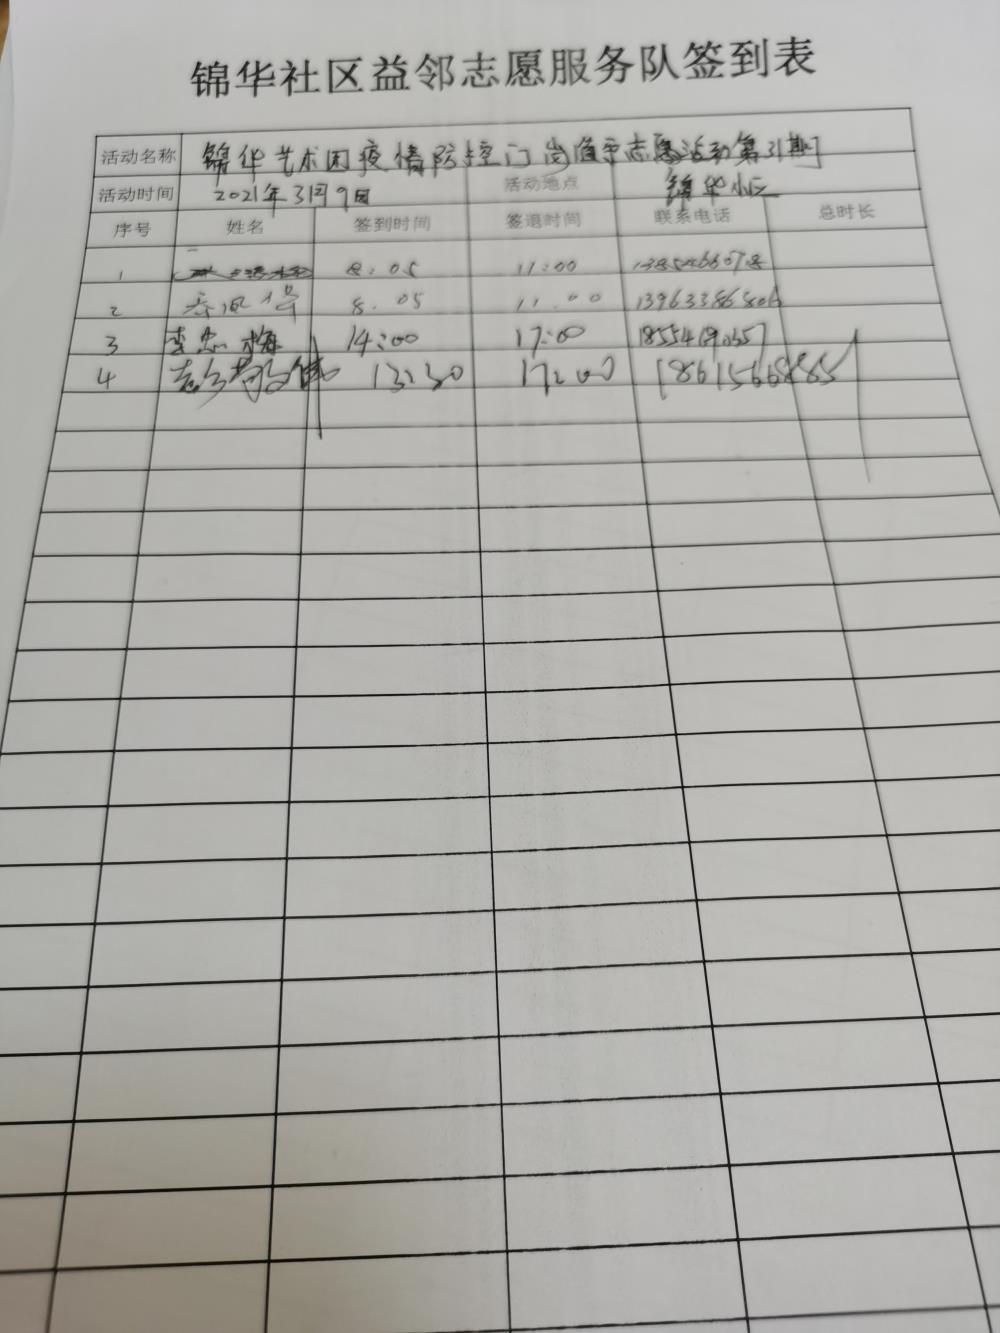 锦华社区益邻志愿服务队签到表
活动名称 锦华艺术团疫情防控门岗值守志愿活动第31期
活动时间 2021年3月9日 活动地点 锦华小区
序号 姓名 签到时间 签退时间 联系电话 总时长
1 8:05 11:00
2 8.05 11.00 13963386806
3 李忠梅 14:00 17:00
4 13:30 17:00